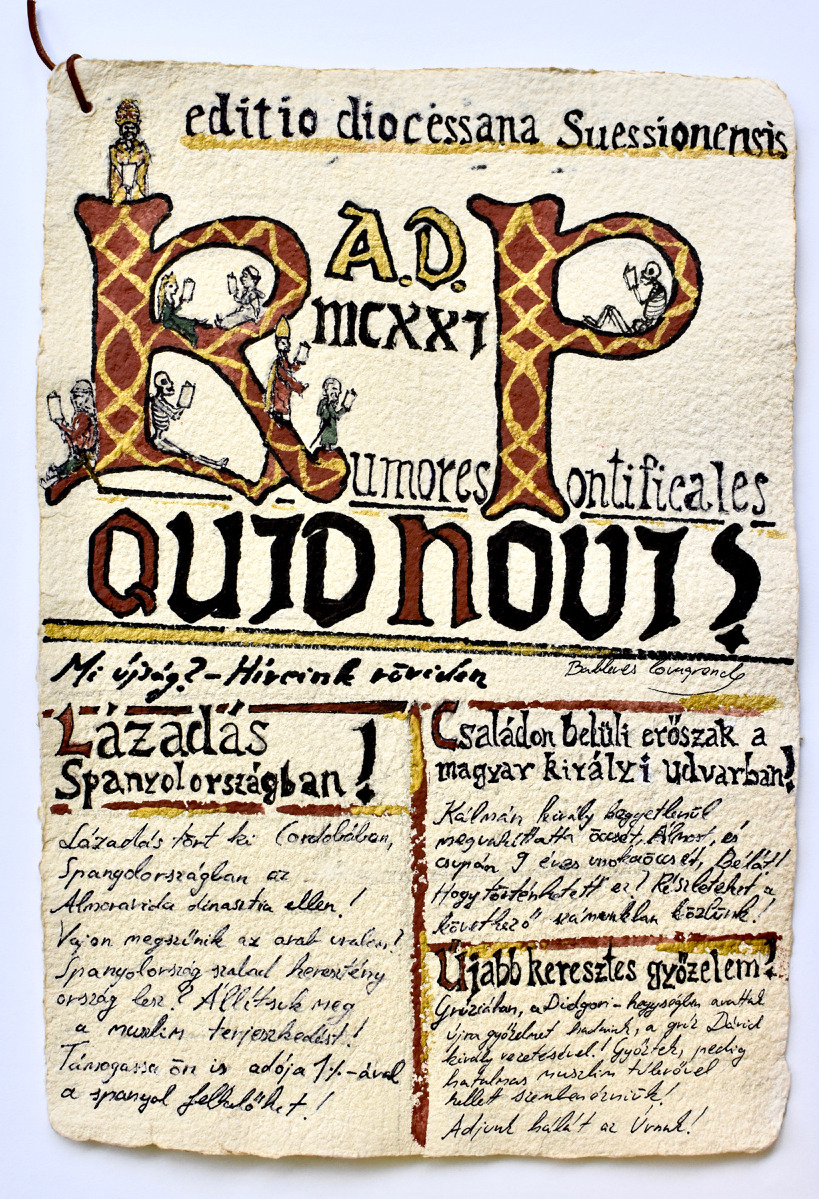 editio diocessana Suessionensis
A.D.
MCXXI
Rumores Pontificales
QUID NOVI?
Mi újság? - Híreink röviden
Lázadás
Spanyolországban!
Lázadás tört ki Cordobában,
Spanyolországban az
Almoravida dinasztia ellen!
Vajon megszűnik az arab uralom?
Spanyolország szabad keresztény
ország lesz? Állítsuk meg
a muszlim terjeszkedést!
Támogassa ön is adója 1%-ával
a spanyol felkelőket!
Családon belüli erőszak a
magyar királyi udvarban!
Kálmán király kegyetlenül
megvakíttatta öccsét, Álmost, és
csupán 9 éves unokaöccsét, Bélát!
Hogy történhetett ez? Részleteket a
következő számunkban közlünk!
Újabb keresztes győzelem!
Grúziában, a Didgori-hegységben arattak
újra győzelmet hadaink, a grúz Dávid
király vezetésével! Győztek, pedig
hatalmas muszlim túlerővel
kellett szembenézniük!
Adjunk hálát az Úrnak!